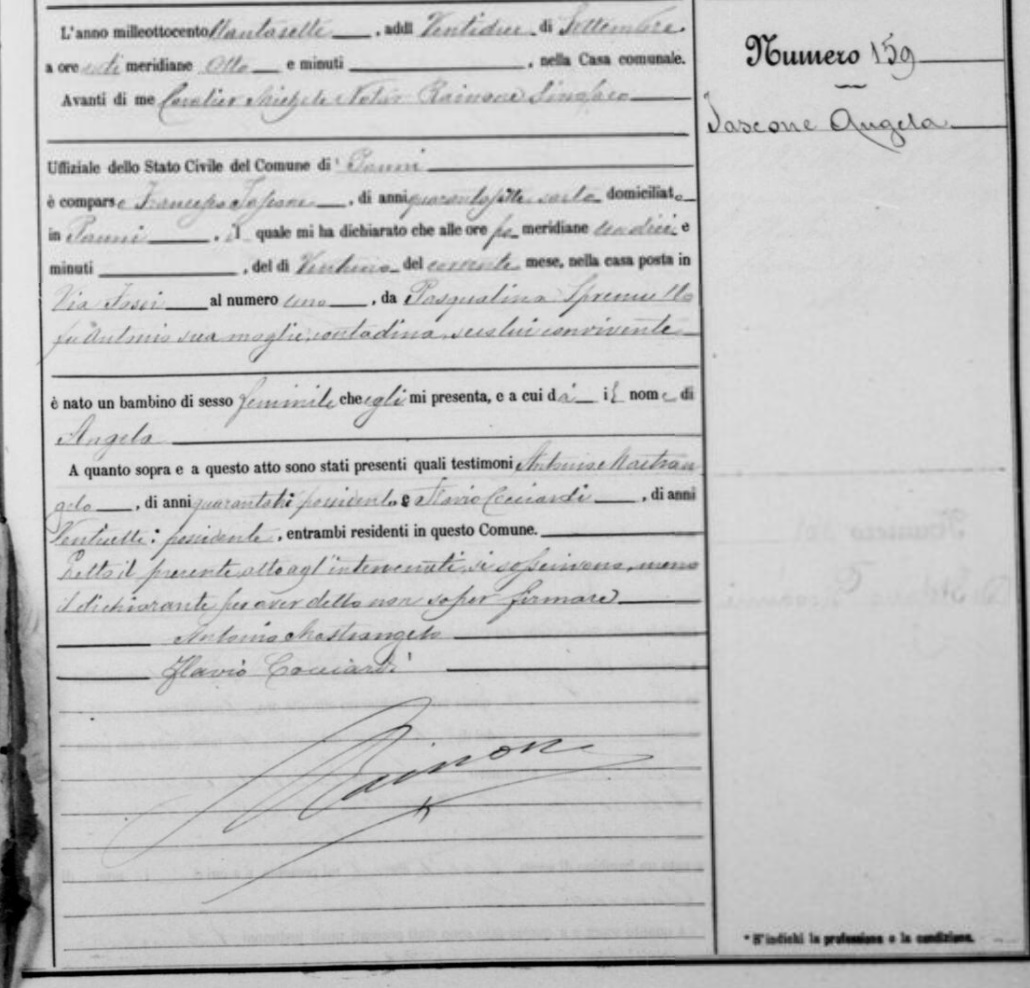 L'anno milleottocento , addì Ventidue di Settembre.
a ore meridiane Otto e minuti , nella Casa comunale.
Avanti di me Cavalier Michele Notar Rainone Sindaco
Uffiziale dello Stato Civile del Comune di Panni
è comparso Francesco , di anni quarantasette sarto domiciliato
in Panni , il quale mi ha dichiarato che alle ore po meridiane undici e
minuti , del dì Ventuno del corrente mese, nella casa posta in
Via al numero uno , da Pasqualina
fu Antonio sua moglie, contadina, seco lui convivente
è nato un bambino di sesso feminile che egli mi presenta, e a cui dà il nome di
Angela
A quanto sopra e a questo atto sono stati presenti quali testimoni Antonio Mastran
gelo , di anni possidente e Flavio Cocciardi , di anni
possidente , entrambi residenti in questo Comune.
Letto il presente atto agl'intervenuti, si soscrivono, meno
il dichiarante per aver detto non saper firmare
Antonio Mastrangelo
Flavio Cocciardi
Rainone
Numero 159
Iascone Angela
* S'indichi la professione o la condizione.